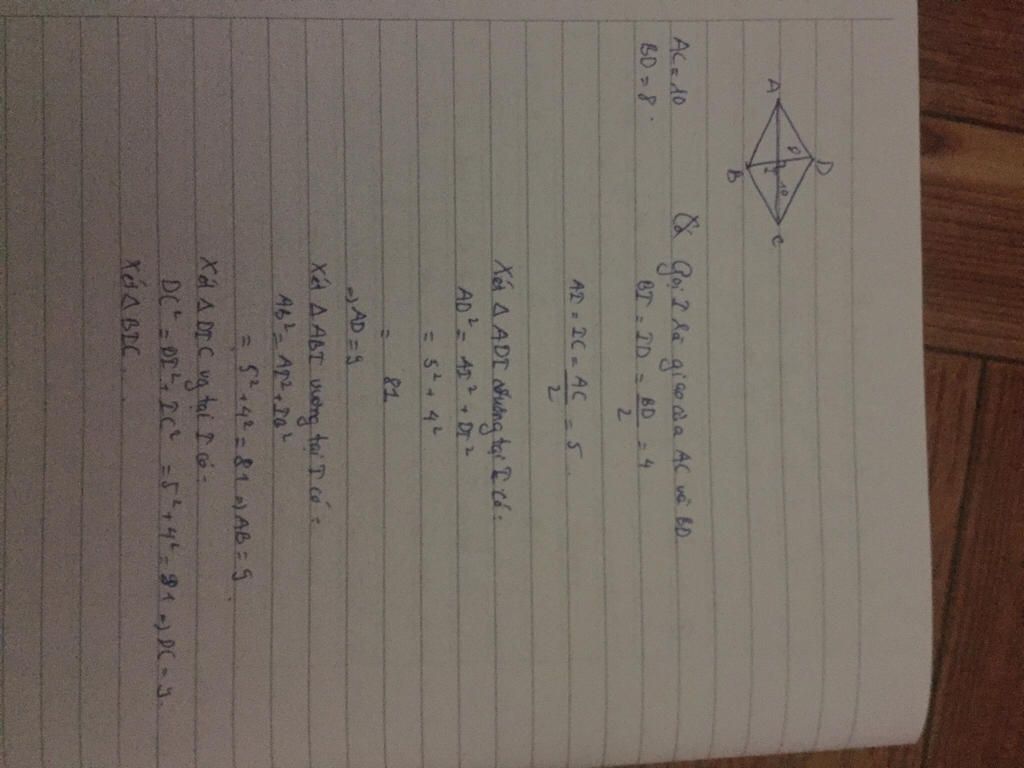 D
A
C
B
8
10
I
AC = 10
BD = 8.
Gọi I là giao của AC và BD
BI = ID = BD/2 = 4
AI = IC = AC/2 = 5.
Xét Δ ADI vuông tại I có:
AD² = AI² + DI²
= 5² + 4²
= 81
⇒ AD = 9
Xét Δ ABI vuông tại I có:
AB² = AI² + IB²
= 5² + 4² = 81 ⇒ AB = 9.
Xét Δ DIC vg tại I có:
DC² = DI² + IC² = 5² + 4² = 81 ⇒ DC = 9.
Xét Δ BIC.